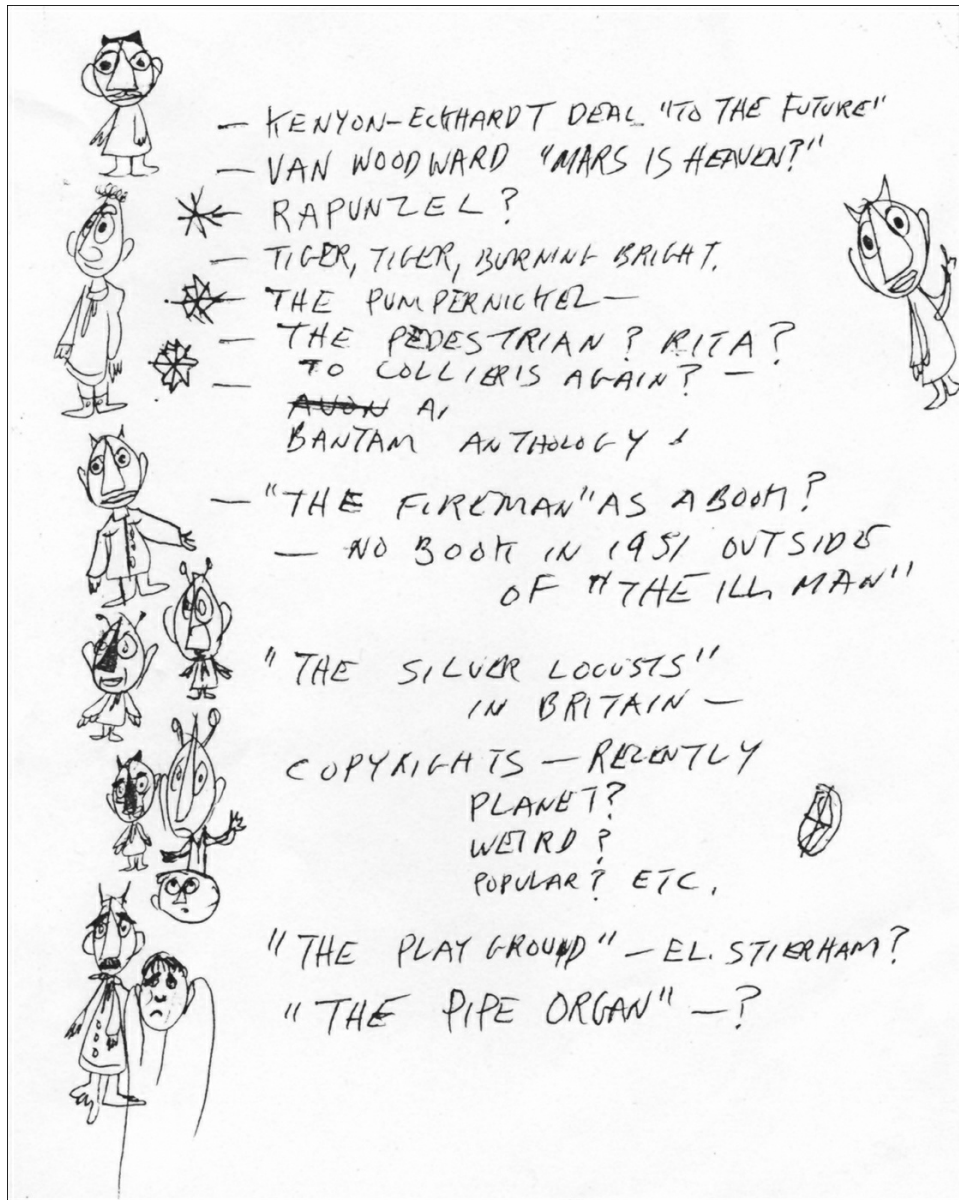 — KENYON-ECKHARDT DEAL "TO THE FUTURE"
— VAN WOODWARD "MARS IS HEAVEN?"
RAPUNZEL?
— TIGER, TIGER, BURNING BRIGHT.
— THE PUMPERNICKEL —
— THE PEDESTRIAN? RITA?
— TO COLLIERIS AGAIN? —
AVON A,
BANTAM ANTHOLOGY
— "THE FIREMAN" AS A BOOK?
— NO BOOK IN 1951 OUTSIDE
OF "THE ILL. MAN"
"THE SILVER LOCUSTS"
IN BRITAIN —
COPYRIGHTS — RECENTLY
PLANET?
WEIRD?
POPULAR? ETC.
"THE PLAYGROUND" — EL. STIERHAM?
"THE PIPE ORGAN" — ?